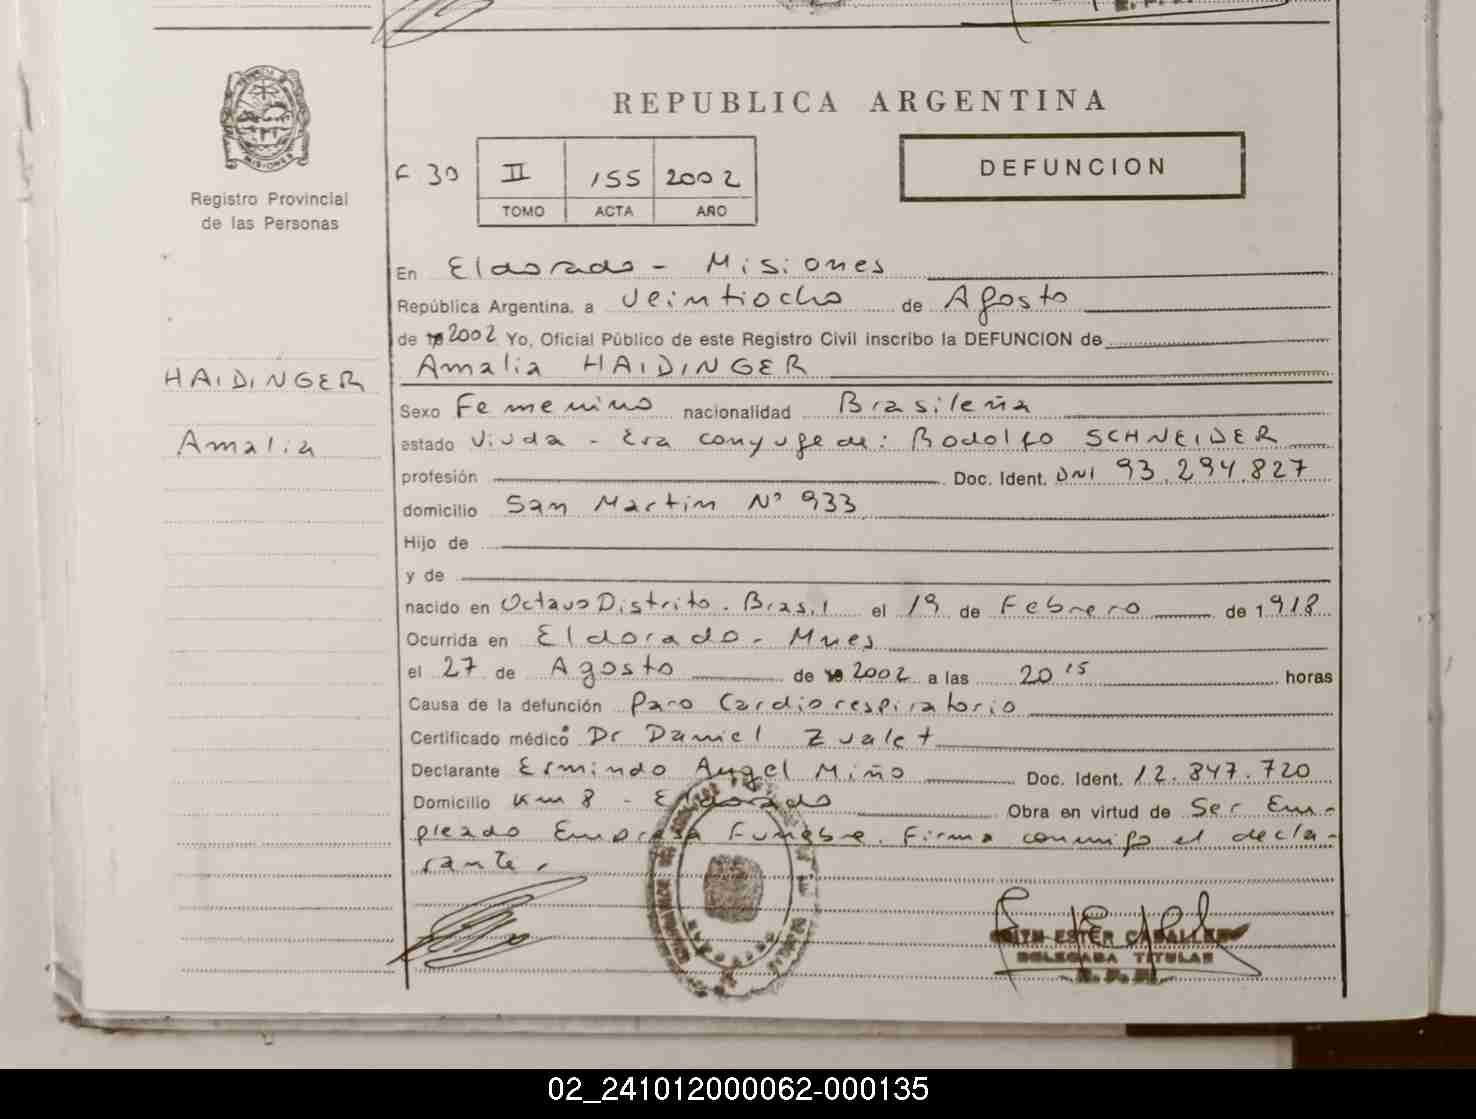 REPUBLICA ARGENTINA
DEFUNCION
F 30 II 155 2002
TOMO ACTA AÑO
MISIONES
Registro Provincial
de las Personas
HAIDINGER
Amalia
En Eldorado - Misiones
República Argentina, a Veintiocho de Agosto
de 2002 Yo, Oficial Público de este Registro Civil inscribo la DEFUNCION de
Amalia HAIDINGER
Sexo Femenino nacionalidad Brasileña
estado Viuda - Era conyuge de: Rodolfo SCHNEIDER
profesión Doc. Ident. DNI 93.294.827
domicilio San Martin Nº 933
Hijo de
y de
nacido en Octavo Distrito. Brasil el 19 de Febrero de 1918
Ocurrida en Eldorado - Mnes
el 27 de Agosto de 2002 a las 20 15 horas
Causa de la defunción Paro Cardiorespiratorio
Certificado médico Dr Daniel Zualet
Declarante Ermindo Angel Miño Doc. Ident. 12.847.720
Domicilio Km 8 - Eldorado Obra en virtud de Ser Em-
pleado Empresa Funebre. Firma conmigo el decla-
rante.
EDITH ESTER CABALLERO
DELEGADA TITULAR
R. P. P.
02_241012000062-000135